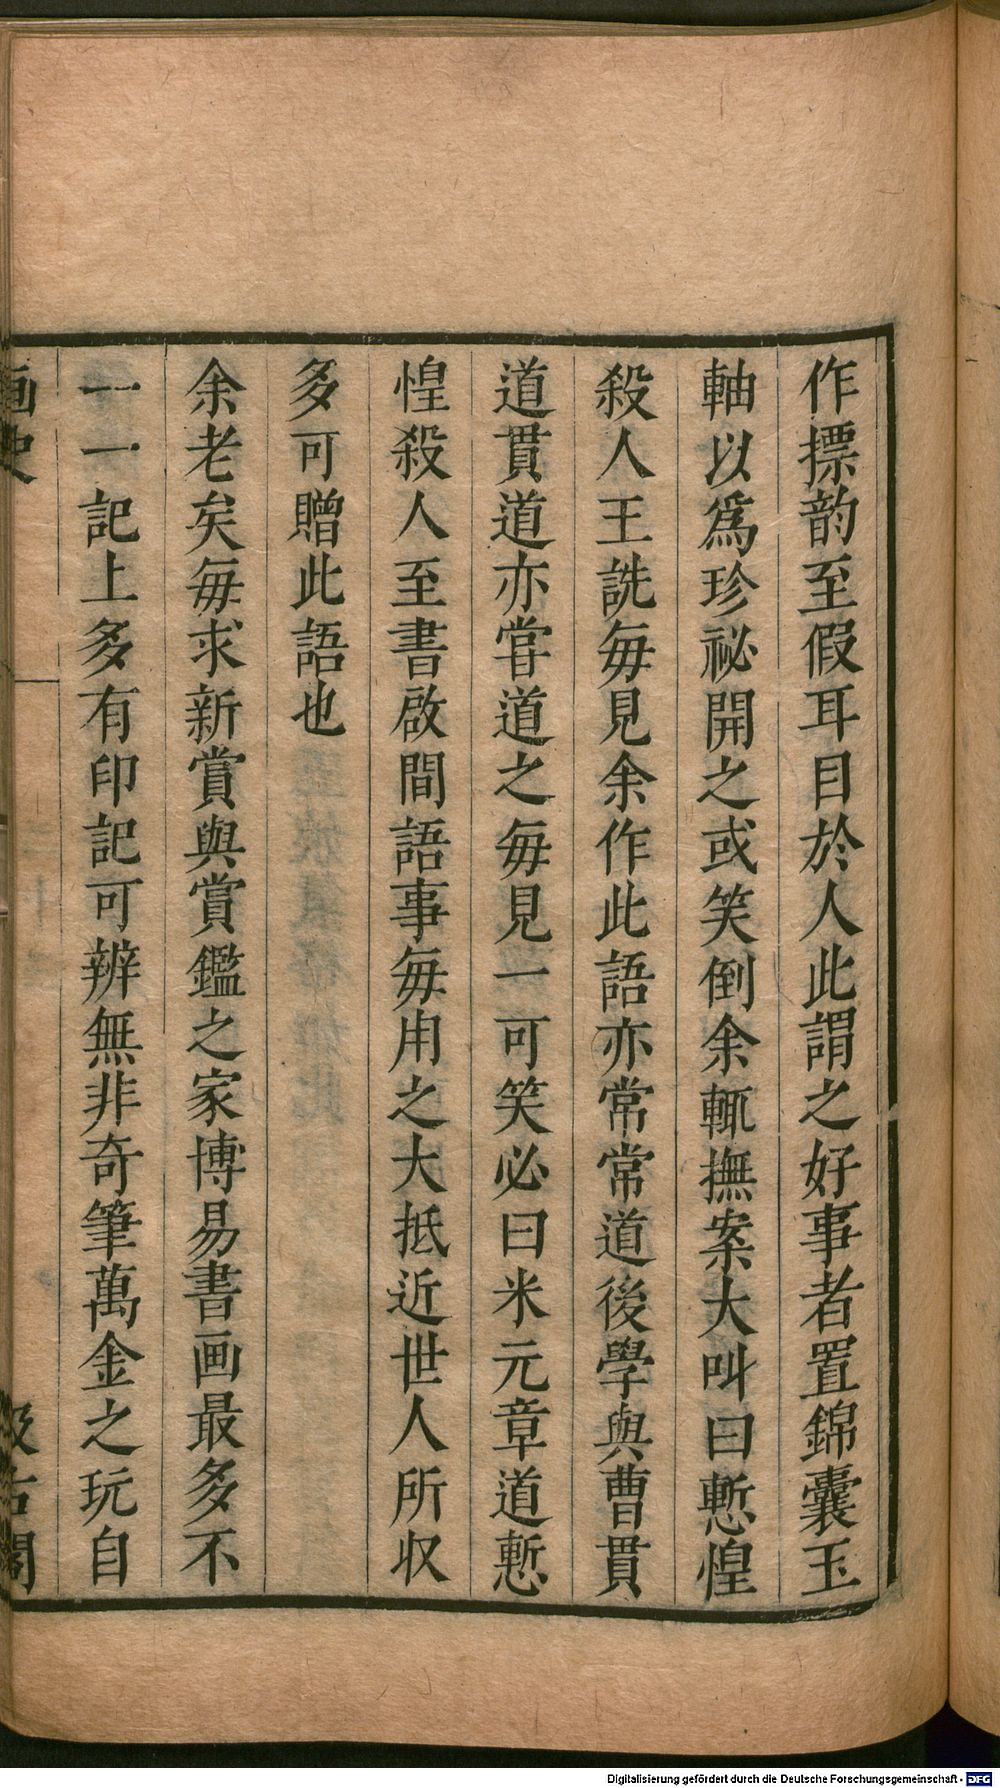 作摽韵至假耳目於人此謂之好事者置錦囊玉
軸以爲珍祕開之或笑倒余輒撫案大叫曰慙惶
殺人王詵每見余作此語亦常常道後學與曹貫
道貫道亦嘗道之每見一可笑必曰米元章道慙
惶殺人至書啟間語事每用之大抵近世人所収
多可贈此語也
余老矣每求新賞與賞鑑之家博易書画最多不
一一記上多有印記可辨無非奇筆萬金之玩自
画史
汲古閣
Digitalisierung gefördert durch die Deutsche Forschungsgemeinschaft - DFG